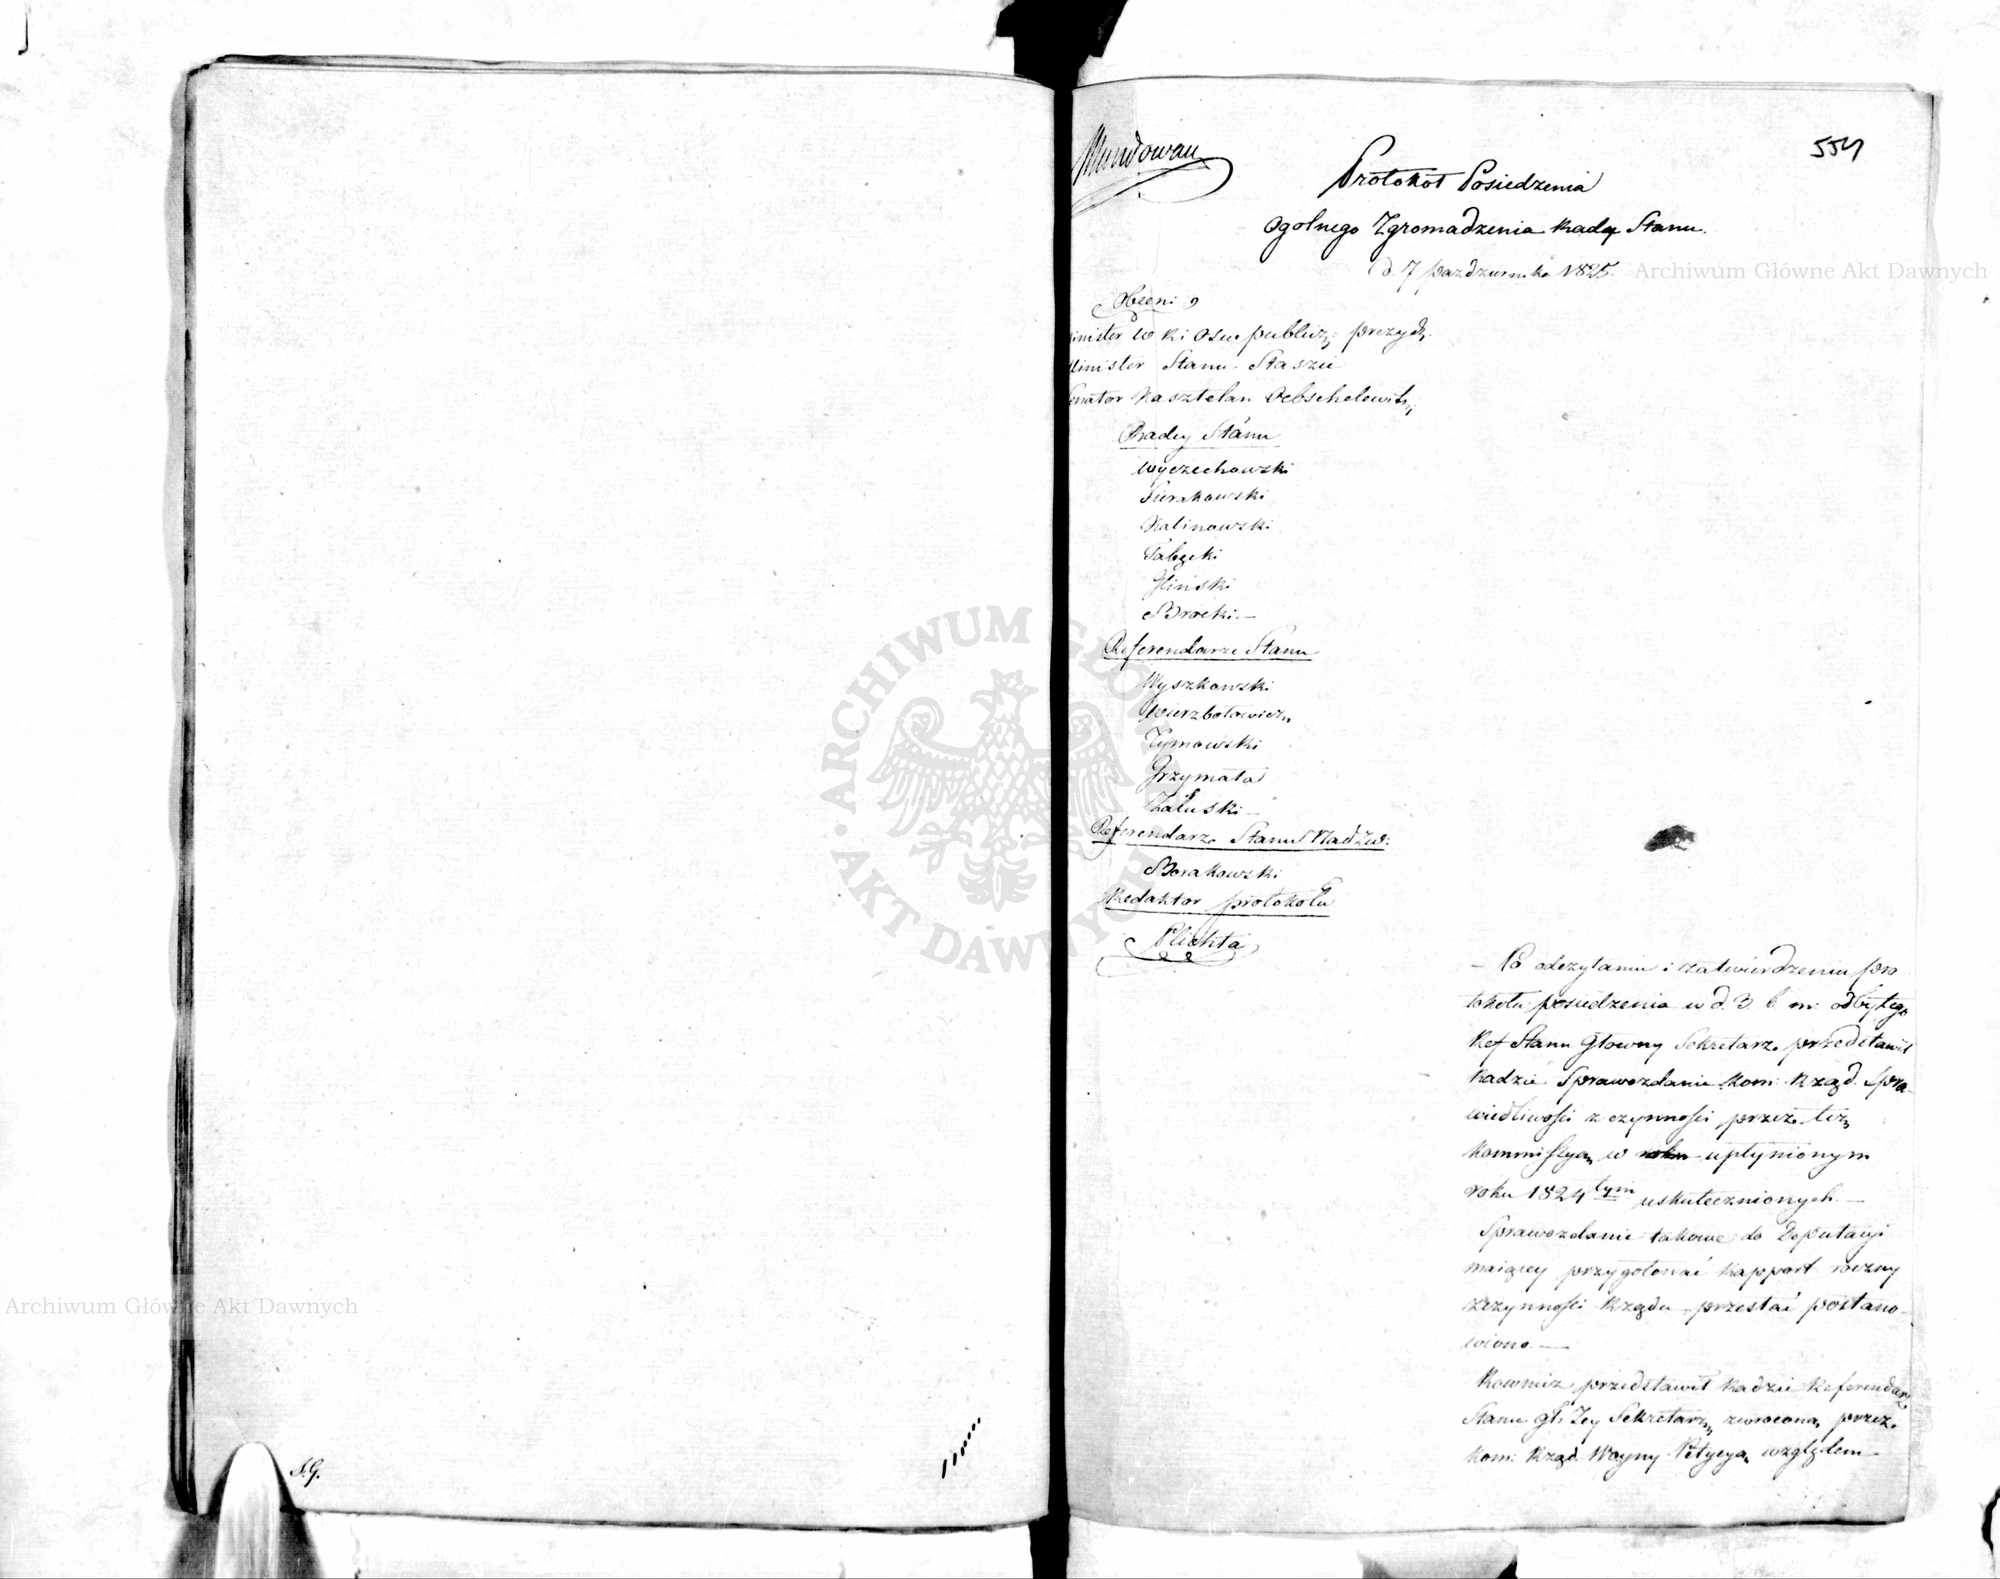 S.G.
Mundowan
554
Protokół Posiedzenia
Ogolnego Zgromadzenia Rady Stanu.
d. 7 Pazdziernika 1825.
Obecni
Minister W R i Ośw publicz: prezyd:
Minister Stanu Staszic
Senator Kasztelan
Radcy Stanu
Wyczechowski
Sierakowski
Kalinowski
Gliński
Brocki. —
Referendarze Stanu
Wyszkowski
Wierzbołowicz
Tymowski
Grzymała
Załuski —
Referendarz Stanu Nadzw:
Borakowski
Redaktor protokołu
Plichta
— Po odczytaniu i zatwierdzeniu pro
tokołu posiedzenia w d. 3 b m: odbytego
Ref Stanu Głowny Sekretarz przedstawił
Radzie Sprawozdanie Kom: Rząd. Spra-
wiedliwości z czynności przez też
Kommissyą w upłynionym
roku 1824 tym uskutecznionych. —
Sprawozdanie takowe do Deputacyi
maiącey przygotować Rapport roczny
z czynności Rządu przesłać postano-
wiono. —
Rownież przedstawił Radzie Referendarz
Stanu Gł: Jey Sekretarz, zwroconą przez
Kom: Rząd. Woyny Petycyą względem
Archiwum Główne Akt Dawnych
Archiwum Główne Akt Dawnych
ARCHIWUM GŁÓWNE AKT DAWNYCH